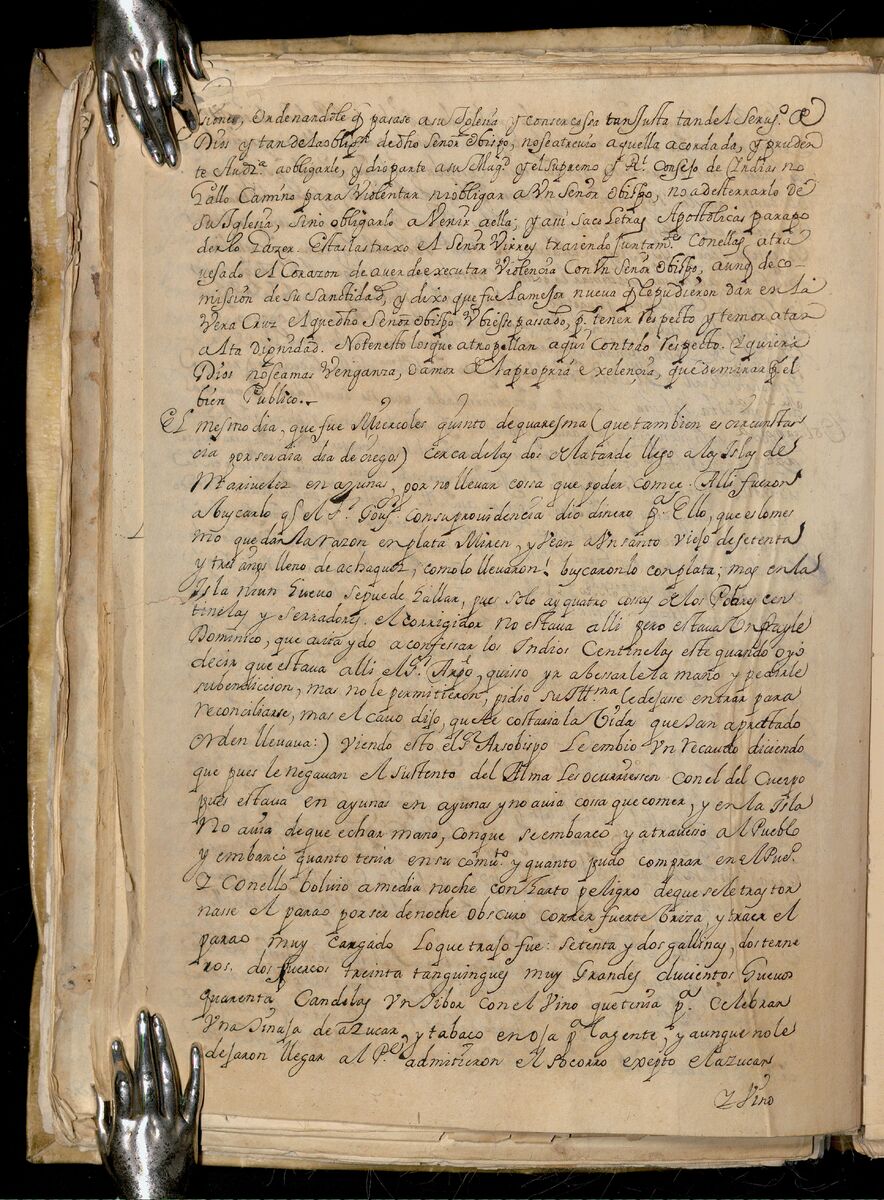 siones, Ordenandole q̃ pasase a su Iglesia y con ser cossa tan Justa tan del Seruº. de
Dios y tan de la obligⁿ. de dho Señor Obispo, no se atreuio aquella acordada, y pruden
te Audª. a obligarle, y dio parte a su Magᵈ y el Supremo y Rˡ. Consejo de Indias no
hallo Camino para Violentar ni obligar a Vn Señor Obispo, no a desterrarlo de
Su Iglesia, sino obligarlo a Venir a ella; y assi saco Letras Apostolicas para po
derlo hazer. Estas las traxo el Señor Virrey trayendo juntamᵗᵉ. Con ellas, atra
uesado el Corazon de auer de executar Violencia Con Vn Señor Obispo, aunq̃ de co-
mission de Su Sanctidad, y dixo que fue la mejor nueua q̃ le pudieron dar en la
Vera Cruz el que dho Señor Obispo Vbiesse passado, pʳ. tener respecto y temor a tan
Alta Dignidad. Noten esto los que atropellan aqui Con todo respecto. Y quiera
Dios no sea mas Venganza, o amor de la propria exelencia, que de mirar pʳ el
bien Publico.-
El mesmo dia, que fue Miercoles quinto de quaresma (que tambien es circunstan
cia por ser dia dia de ciegos) cerca de las dos de la tarde llego a las Islas de
Mariuelez en ayunas, por no lleuar cossa que poder comer. (Alli fueron
a buscarlo q̃ el Sʳ. Gouʳ. con su prouidencia dio dinero pᵃ. Ello, que es lo mes
mo que dan la razon en plata. Miren, y Vean a Vn santo Viejo de setenta
y tres años lleno de achaques, como lo lleuaron! buscaronlo con plata; mas en la
Isla ni un hueuo se puede hallar, pues solo ay quatro cossas de los Pobres cen
tinelas y Serradores. el corregidor no estaua alli pero estaua Vn frayle
Dominico, que auia ydo a confessar los Indios Centinelas este quando oyò
decir que estaua alli el Sʳ. Arpᵒ, quisso yr a bessarle la mano y pedirle
su bendiccion, mas no le permitieron, pidio su Illᵐᵃ. le dejasse entrar para
reconciliarse, mas el cauo dijo, que le costaria la Vida que Dan aprettado
Orden lleuaua:) Viendo esto el Sʳ Arsobispo Le embio Vn recaudo diciendo
que pues le negauan el Sustento del Alma Les ocurriessen con el del Cuerpo
pues estaua en ayunas en ayunas y no auia cossa que comer, y en la Isla
No auia de que echar mano, Con que se embarcò y atraueso al Pueblo
y embarcò quanto tenia en su comuᵗᵒ. y quanto pudo comprar en el Pueᵒ.
Y Con ello boluio a media noche con harto peligro de que se le trastor
nasse el parao por ser de noche obscuro correr fuerte briza, y traer el
parao muy cargado Lo que trajo fue: setenta y dos gallinas, dos terne
ros. dos puercos treinta tanguingues muy Grandes ducientos Gueuos
quarenta Candelas Vn tibor con el Vino que tenia pᵃ. Celebrar
Vna tinaja de azucar, y tabaco en oja pᵃ la gente, y aunque no le
dejaron llegar al Pᵉ, admitieron el Socorro exepto el azucar
Y Vino